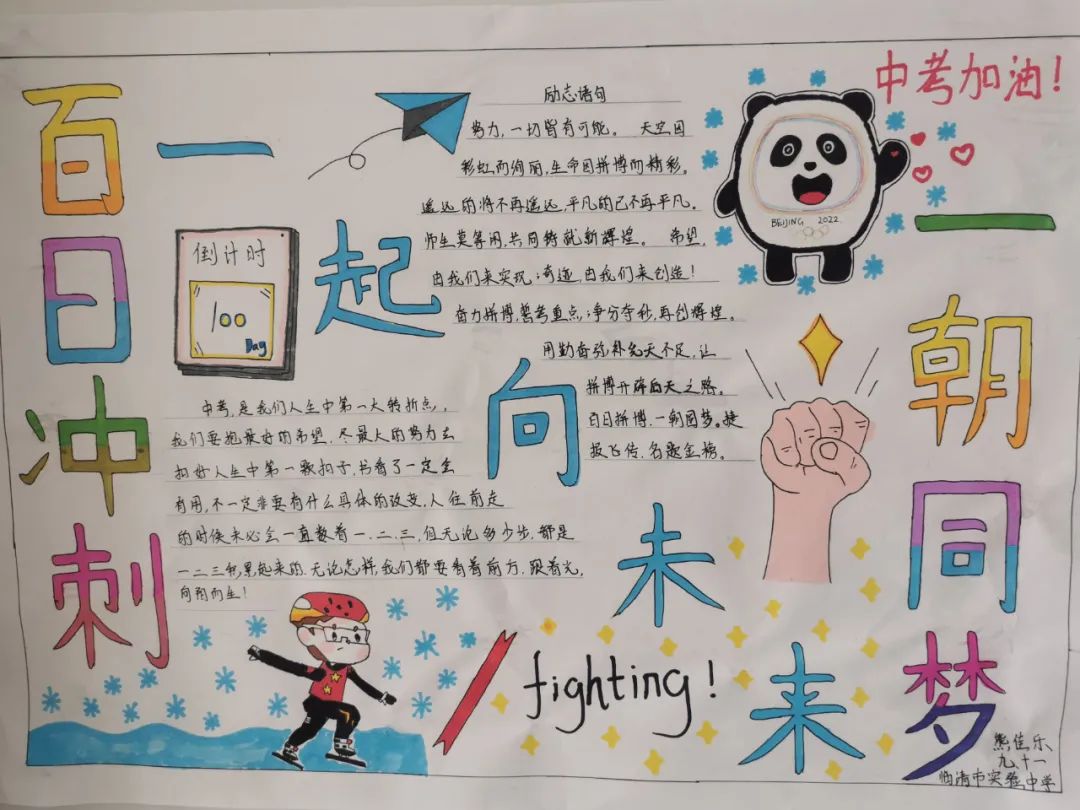 百日冲刺
一起向未来
一朝同梦
中考加油!
倒计时
100
Day
励志语句
努力,一切皆有可能。 天空因
彩虹而绚丽,生命因拼搏而精彩。
遥远的将不再遥远,平凡的已不再平凡。
师生莫等闲,共同铸就新辉煌。 希望,
由我们来实现;奇迹,由我们来创造!
奋力拼搏,誓考重点;争分夺秒,再创辉煌。
用勤奋弥补先天不足,让
拼搏开辟后天之路。
百日拼搏,一朝圆梦。捷
报飞传,名题金榜。
BEIJING 2022
中考,是我们人生中第一大转折点,
我们要抱最好的希望,尽最大的努力去
扣好人生中第一颗扣子,书看了一定会
有用,不一定非要有什么具体的改变,人往前走
的时候未必会一直数着一.二.三,但无论多少步,都是
一二三积累起来的.无论怎样,我们都要看着前方,跟着光,
向阳而生!
fighting!
熊佳乐
九.十一
临清市实验中学